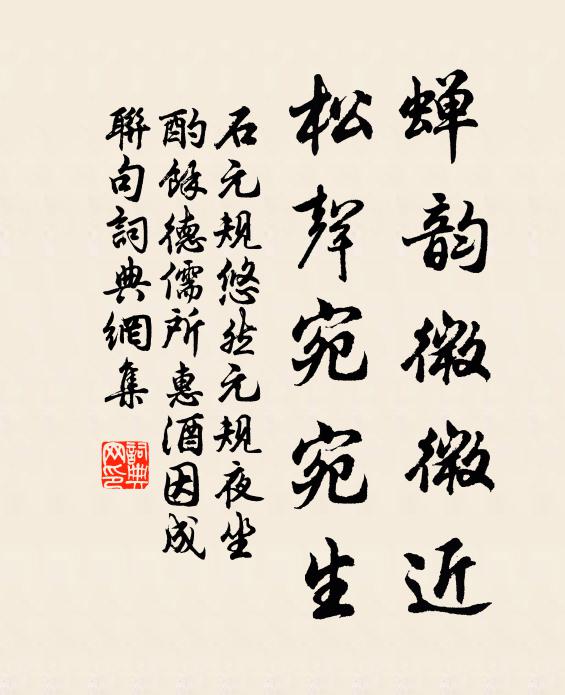 蝉韵微微近
松聲宛宛生
石元规悠然元规夜坐
酌餘德儒所惠酒因成
聯句詞典網集
詞典
网印